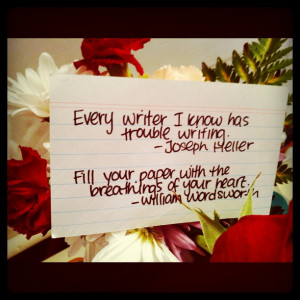 Every writer I know has
trouble writing.
- Joseph Heller
Fill your paper with the
breathings of your heart.
- William Wordsworth